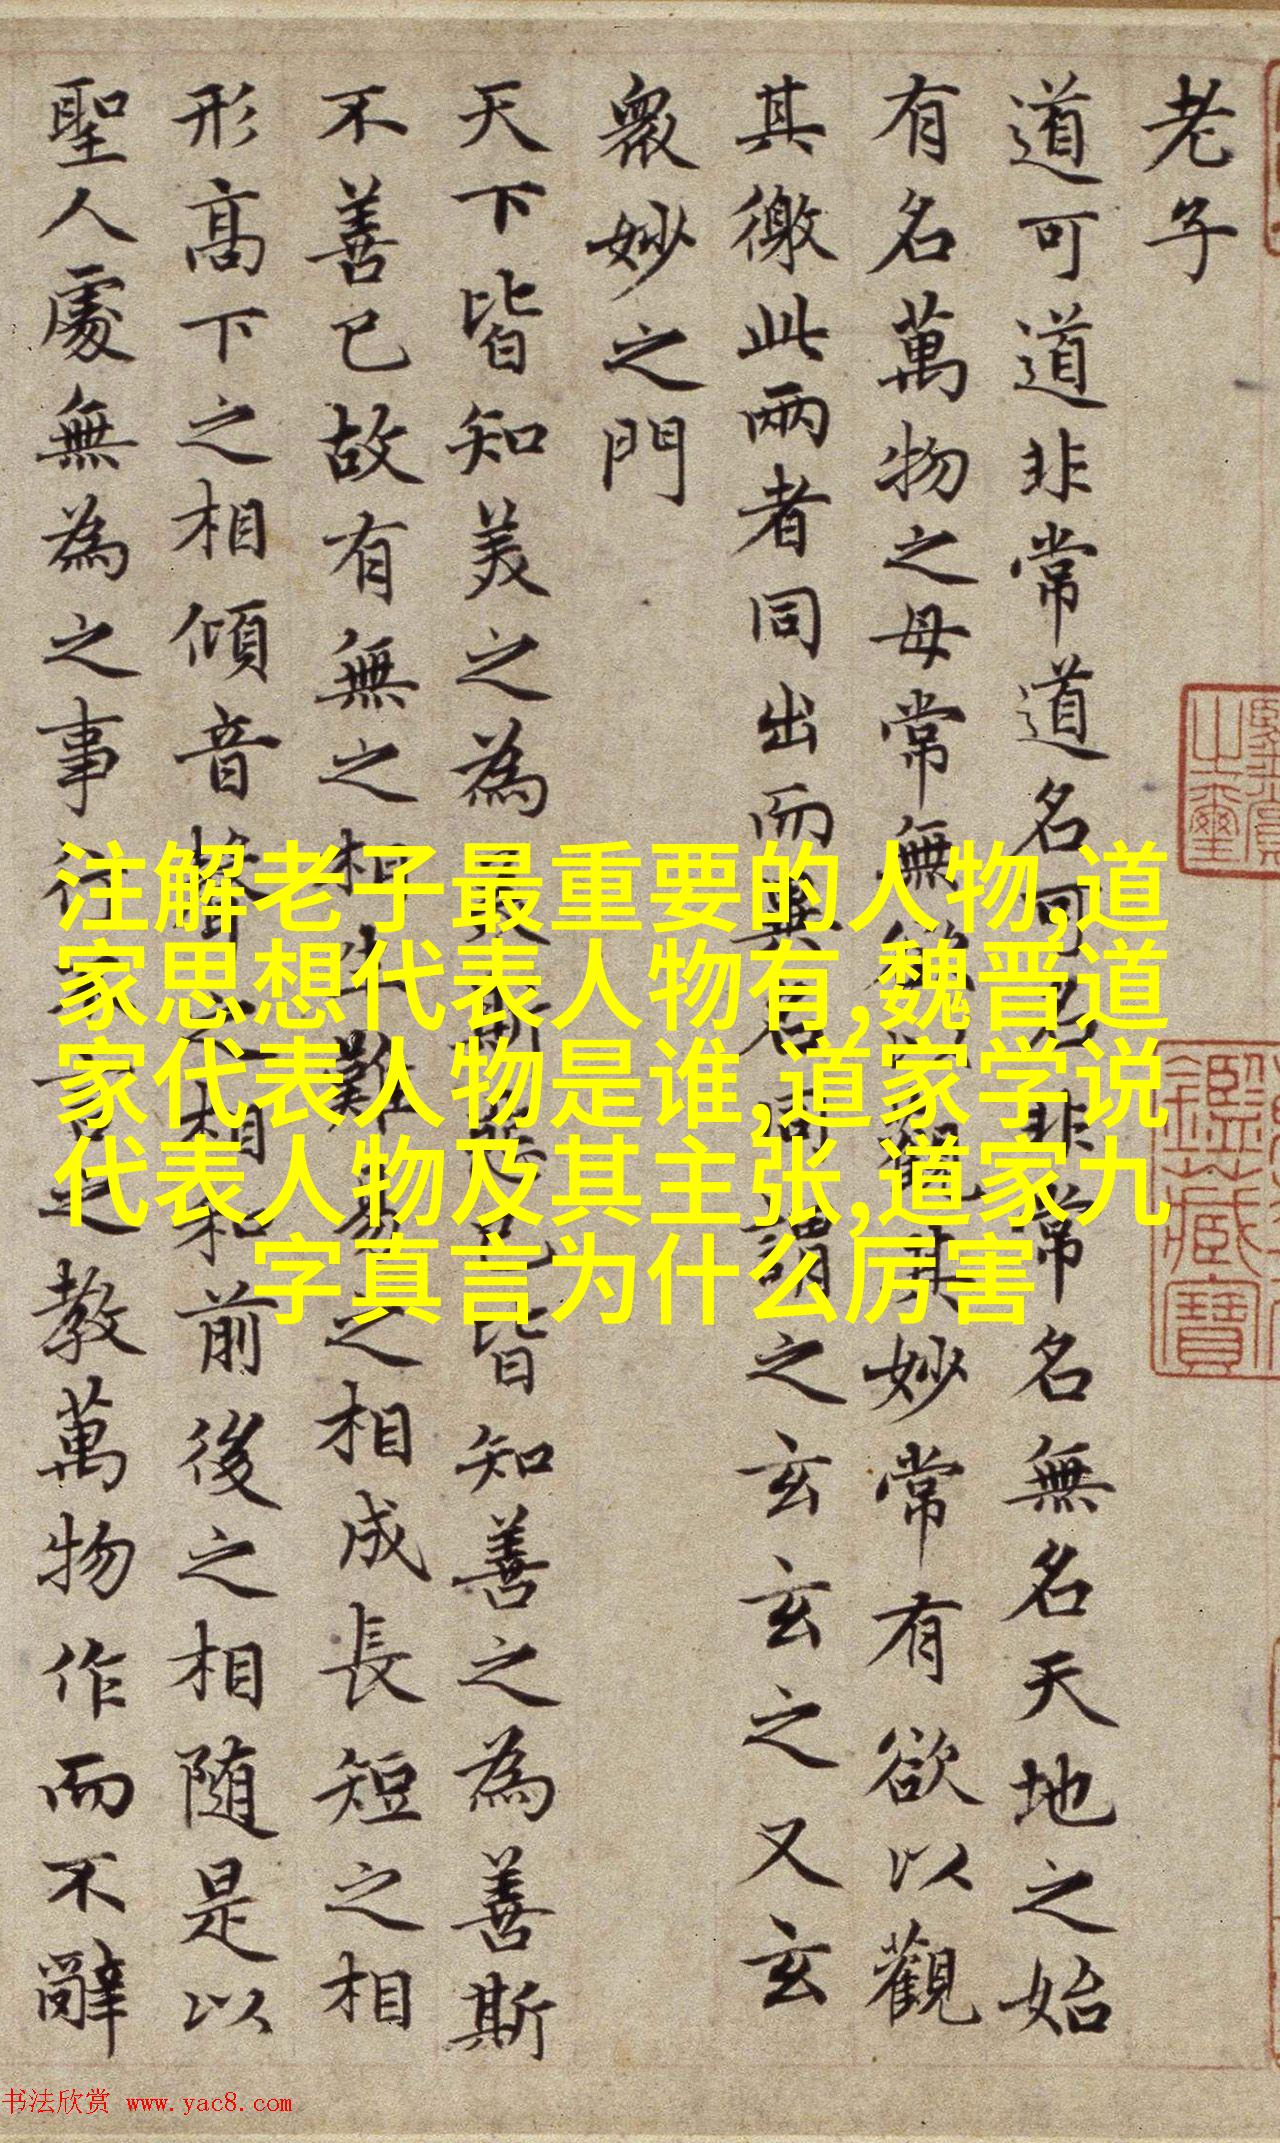 老子
道可道非常道名可名非常名無名天地之始
有名萬物之母常無欲以觀其妙常有欲以觀
其徼此兩者同出而異名同謂之玄玄之又玄
衆妙之門
天下皆知美之為美斯惡已皆知善之為善斯
不善已故有無之相生難易之相成長短之相
形高下之相傾音聲之相和前後之相随是以
聖人處無為之事行不言之教萬物作而不辭
注解老子最重要的人物,道
家思想代表人物有,魏晋道
家代表人物是谁,道家学说
代表人物及其主张,道家九
字真言为什么厉害
之璽
鑑藏寶
书法欣赏 www.yac8.com